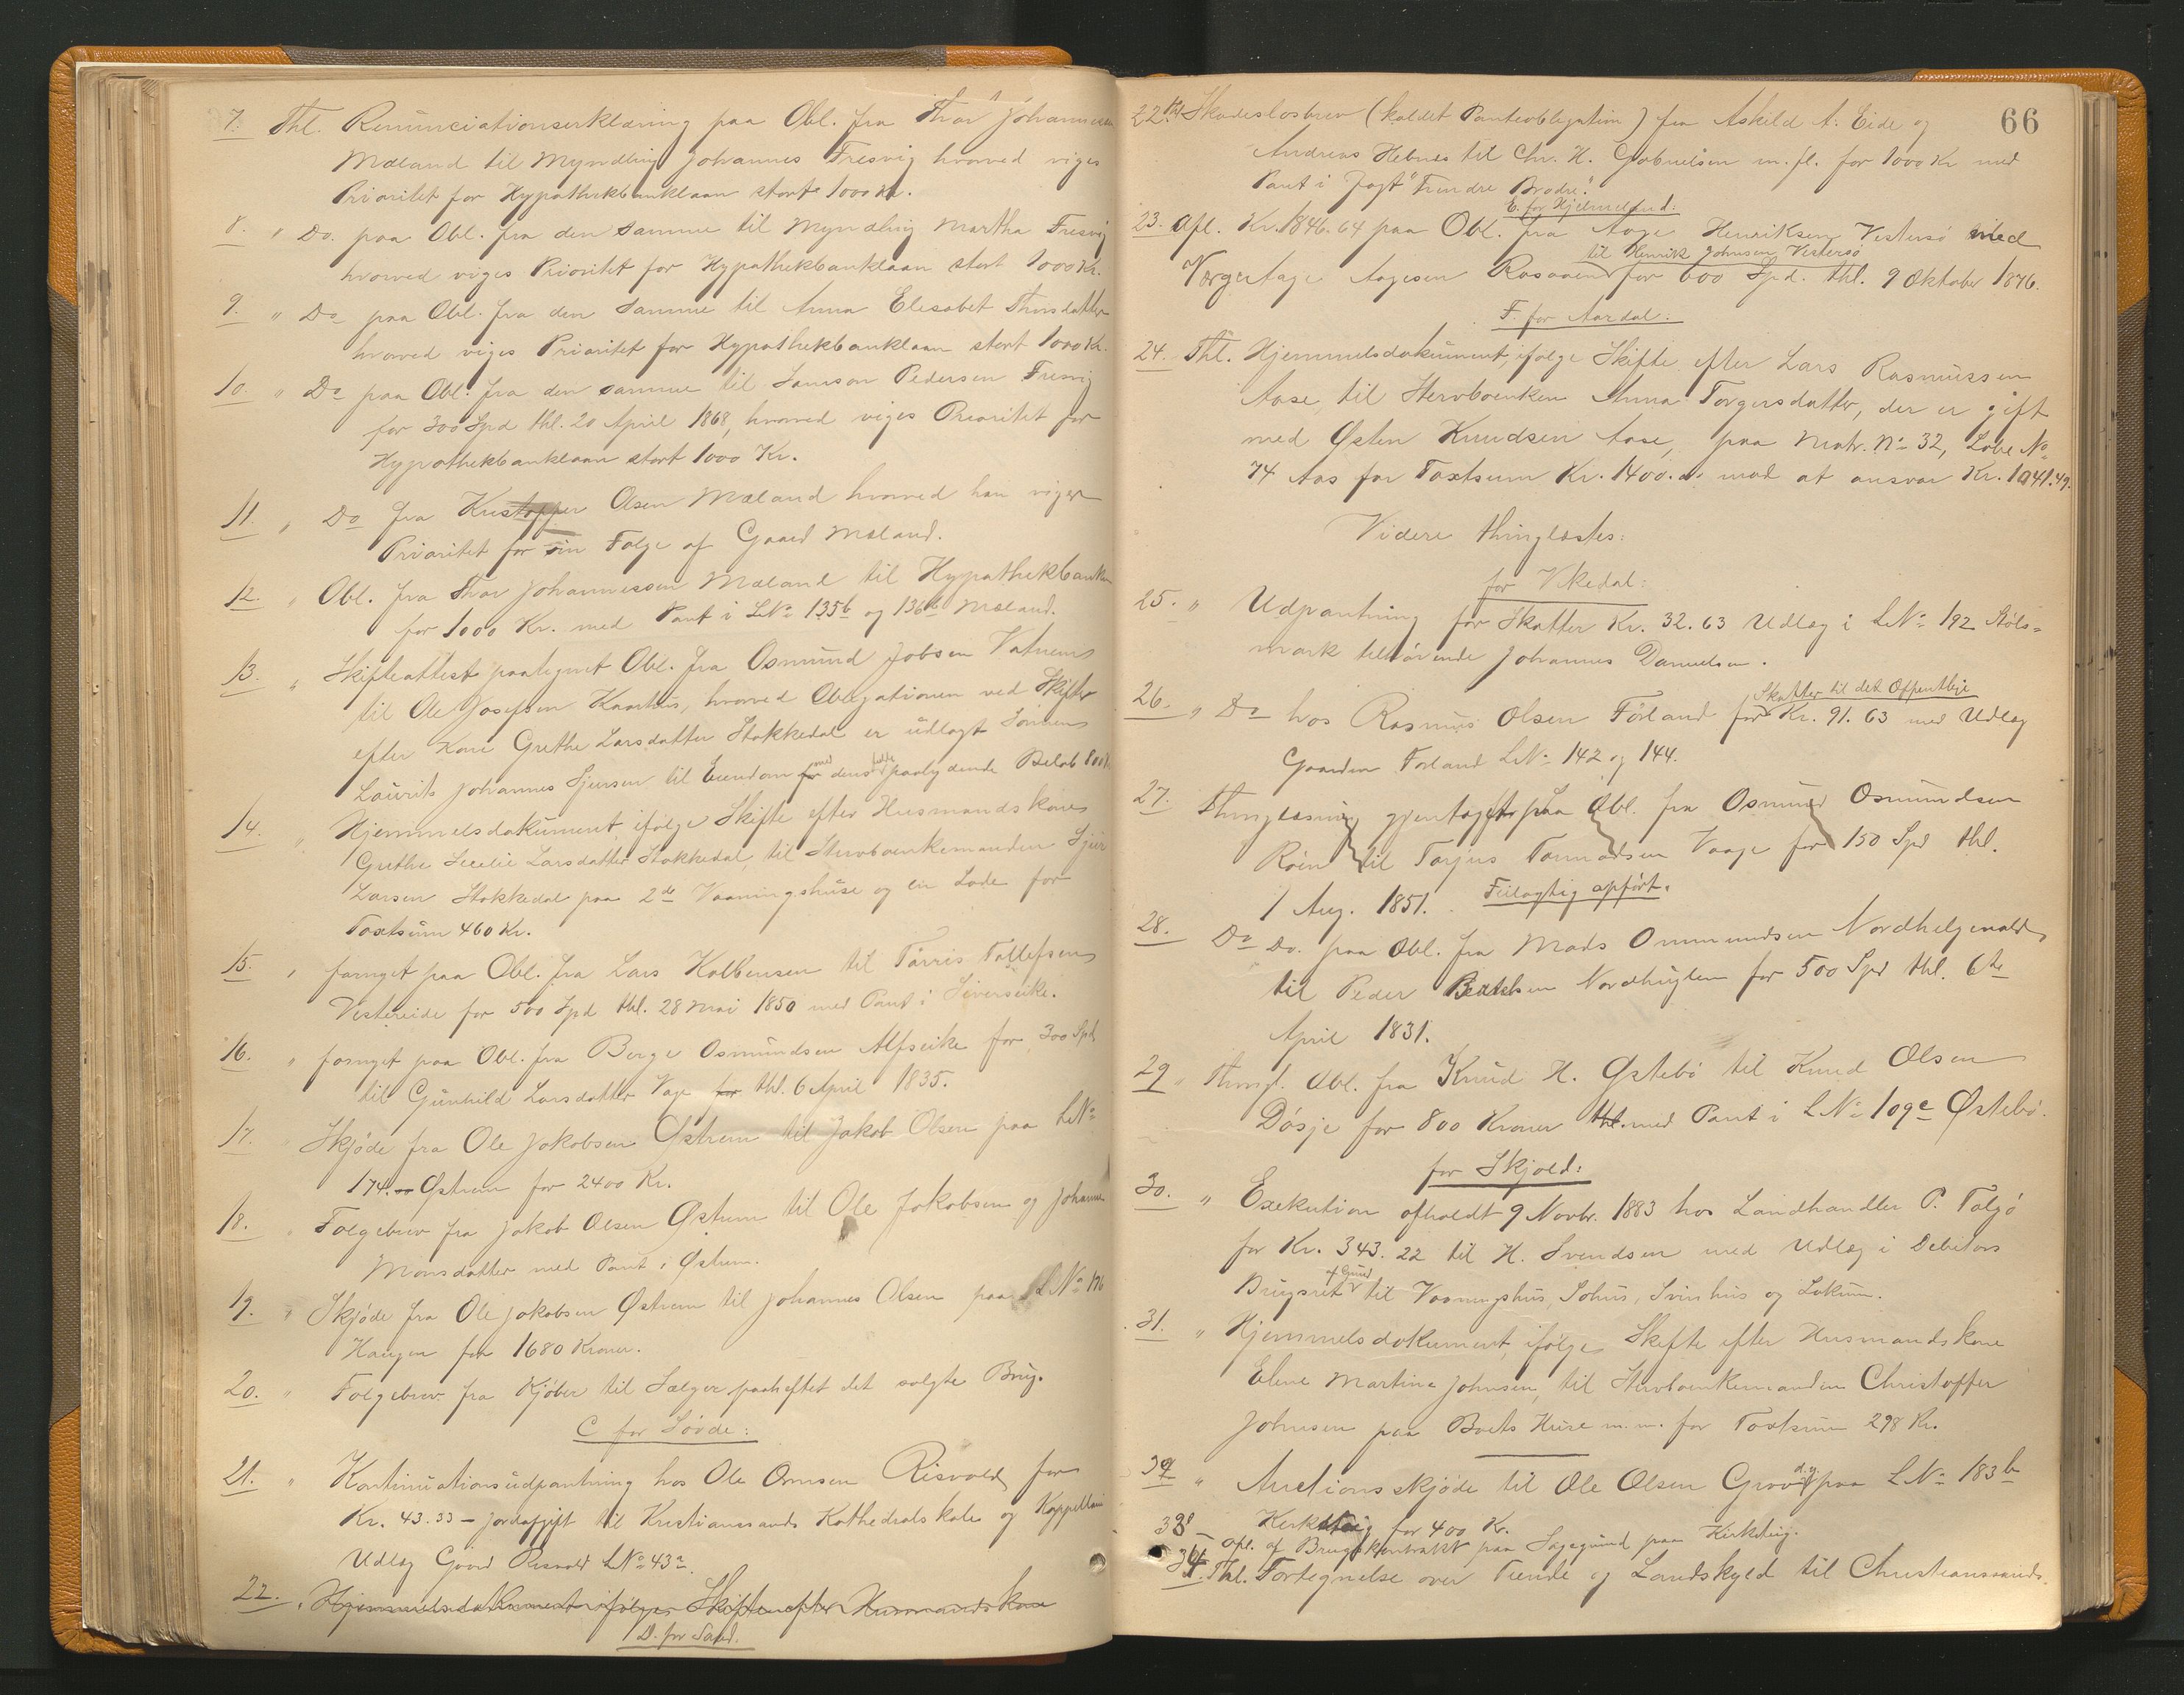 7. Thl. Renunciationserklæring paa Obl. fra Thor Johannesen
Mæland til Myndling Johannes Fresvig hvorved viges
Prioritet for Hypothekbanklaan stort 1000 Kr.
8. " Do. paa Obl. fra den Samme til Myndling Martha Fresvig
hvorved viges Prioritet for Hypothekbanklaan stort 1000 Kr.
9. " Do paa Obl. fra den Samme til Anna Elisabet Thorsdatter
hvorved viges Prioritet for Hypothekbanklaan stort 1000 Kr.
10. " Do paa Obl. fra den samme til Samson Pedersen Fresvig
for 300 Spd thl. 20 April 1868, hvorved viges Prioritet for
Hypothekbanklaan stort 1000 Kr.
11. " Do fra Kristopher Olsen Mæland hvorved han viger
Prioritet for sin Følge af Gaard Mæland.
12. " Obl. fra Thor Johannessen Mæland til Hypothekbanken
for 1000 Kr. med Pant i LNo 135b og 136b Mæland.
13. " Skifteattest paategnet Obl. fra Osmund Jobsen Vatnem
til Ole Josefsen Kaarhus, hvorved Obligationen ved Skifte
efter Kone Grethe Larsdatter Stokkedal er udlagt Sønnen
Laurits Johannes Sjursen til Eiendom for med dens paalydende Beløb 800 Kr
14. " Hjemmelsdokument ifølge Skifte efter Husmandskone
Grethe Secelie Larsdatter Stokkedal, til Stervboenkemanden Sjur
Larsen Stokkedal paa 2de Vaaningshuse og en Lade for
Taxtsum 460 Kr.
15. " fornyet paa Obl. fra Lars Kolbensen til Tørris Tollefsen
Vestereide for 500 Spd thl. 28 Mai 1850 med Pant i Siverseike.
16. " fornyet paa Obl. fra Berge Osmundsen Alfseike for 300 Spd
til Gunhild Larsdatter Vage for thl. 6 April 1835.
17. " Skjøde fra Ole Jakobsen Østrem til Jakob Olsen paa LNo
174. Østrem for 2400 Kr.
18. " Følgebrev fra Jakob Olsen Østrem til Ole Jakobsen og Johanne
Monsdatter med Pant i Østrem.
19. " Skjøde fra Ole Jakobsen Østrem til Johannes Olsen paa LNo 176
Haugen for 1680 Kroner.
20. " Følgebrev fra Kjøber til Sælger paaheftet det solgte Brug.
C for Søvde:
21. " Kontinuationsudpantning hos Ole Ormsen Risvold for
Kr. 43.33 – Jordafgift til Kristianssands Kathedralskole og Kappellani
Udlæg Gaard Risvold LNo 43a.
22. " Hjemmelsdokument ifølge Skifte efter Husmandskone
D. for Sand.
66
22. Thl Skadesløsbrev (kaldet Panteobligation) fra Askild A. Eide og
Andreas Hebnes til Chr. H. Gabrielsen m. fl. for 1000 Kr med
Pant i Jagt "Trendre Brødre".
E. for Hjelmeland:
23. Afl. Kr. 1846.64 paa Obl. fra Aage Henriksen Vestersø med
til Henrik Johnsen Vestersø
Værge Aage Aagesen Rasaaen for 600 Spd. thl. 9 Oktober 1876.
F. for Aardal:
24. Thl. Hjemmelsdokument, ifølge Skifte efter Lars Rasmussen
Aase, til Stervboenken Anna Torgersdatter, der er gift
med Østen Knudsen Aase, paa Matr. No 32, Løbe No
74 Aas for Taxtsum Kr. 1400. mod at ansvar Kr. 1041.49.
Videre thinglæstes:
for Vikedal:
25. " Udpantning for Skatter Kr. 32.63 Udlæg i LNo 192 Støls=
mark tilhørende Johannes Danielsen.
Skatter til det Offentlige
26. " Do hos Rasmus Olsen Førland for Kr. 91.63 med Udlæg
Gaarden Førland LNo 142 og 144.
27. Thinglæsning gjentaget paa Obl. fra Osmund Osmundsen
Røien til Torjus Tormodsen Vaage for 150 Spd thl.
1 Aug. 1851. Feilagtig opført.
28. Do Do. paa Obl. fra Mads Ommundsen Nordhelgevold
til Peder Nordhuglen for 500 Spd thl. 6te
April 1831.
29 " Thingl. Obl. fra Knud H. Østebø til Knud Olsen
Døsje for 800 Kroner thl. med Pant i LNo 109c Østebø.
for Skjold:
30. " Exekution afholdt 9 Novbr. 1883 hos Landhandler P. Talgø
for Kr. 343.22 til H. Svendsen med Udlæg i Debitors
Brugsret af Grund til Vaaningshus, Søhus, Svinhus og Lokum.
31. " Hjemmelsdokument, ifølge Skifte efter Husmandskone
Elene Martine Johnsen, til Stervboenkemanden Christoffer
Johnsen paa Boets Huse m.m. for Taxtsum 298 Kr.
32 " Auctionsskjøde til Ole Olsen Grov d.y. paa LNo 183b
Kirketeig for 400 Kr.
33 – Afl. af Brugskontrakt paa Sagegrund paa Kirketeig.
34. Thl. Fortegnelse over Tiende og Landskyld til Christianssands